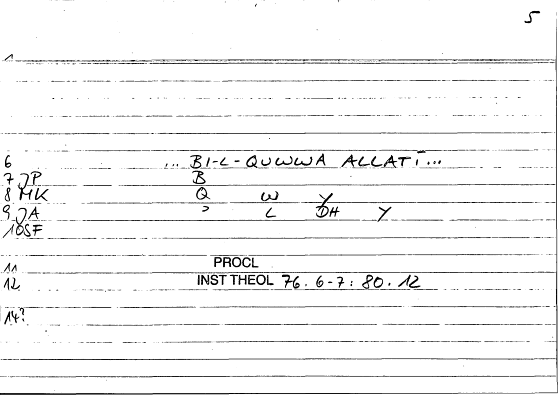 5
1
6 ... BI-L-QUWWA ALLATĪ...
7 JP B
8 MK Q W Y
9 JA ʾ L DH Y
10 SF
11 PROCL
12 INST THEOL 76.6-7: 80.12
14?